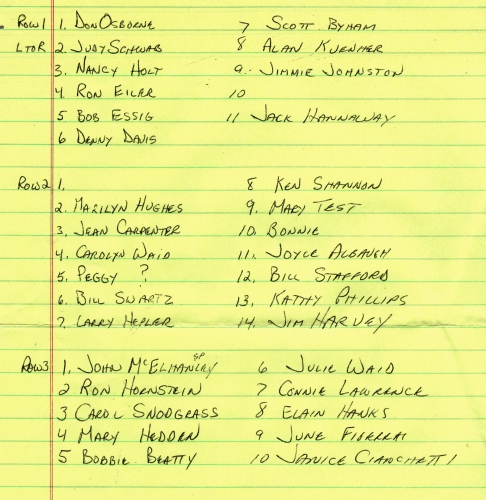 Row 1 1. Don Osborne 7 Scott Byham
L to R 2. Judy Schwab 8 Alan Kuenher
3. Nancy Holt 9. Jimmie Johnston
4 Ron Eiler 10
5 Bob Essig 11 Jack Hannaway
6 Denny Davis
Row 2 1. 8 Ken Shannon
2. Marilyn Hughes 9. Mary Test
3. Jean Carpenter 10. Bonnie
4. Carolyn Waid 11. Joyce Albaugh
5. Peggy ? 12. Bill Stafford
6. Bill Swartz 13. Kathy Phillips
7. Larry Hepler 14. Jim Harvey
sp
Row 3 1. John 6 Julie Waid
2 Ron Hornstein 7 Connie Lawrence
3 Carol Snodgrass 8 Elain Hanks
4 Mary Hedden 9 June
5 Bobbie Beatty 10 Janice Cianchetti